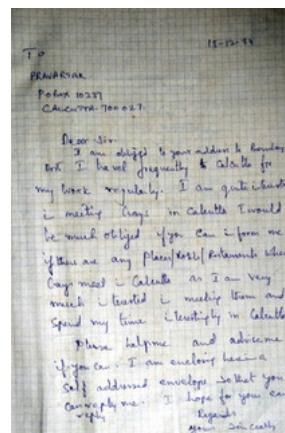 To
18-12-94
PRAVARTAK
P.O. BOX 10237
CALCUTTA-700027.
Dear Sir.
I am obliged to your address to Bombay
Dost. I travel frequently to Calcutta for
my work regularly. I am quite interested
in meeting Gays in Calcutta I would
be much obliged if you can inform me
if there are any Places/ /Restaurants where
Gays meet in Calcutta as I am very
much interested in meeting them and
spend my time interestingly in Calcutta
Please help me and advise me
if you can. I am enclosing herein a
self addressed envelope so that you
can reply me. I hope for your
reply
Regards
Yours Sincerely